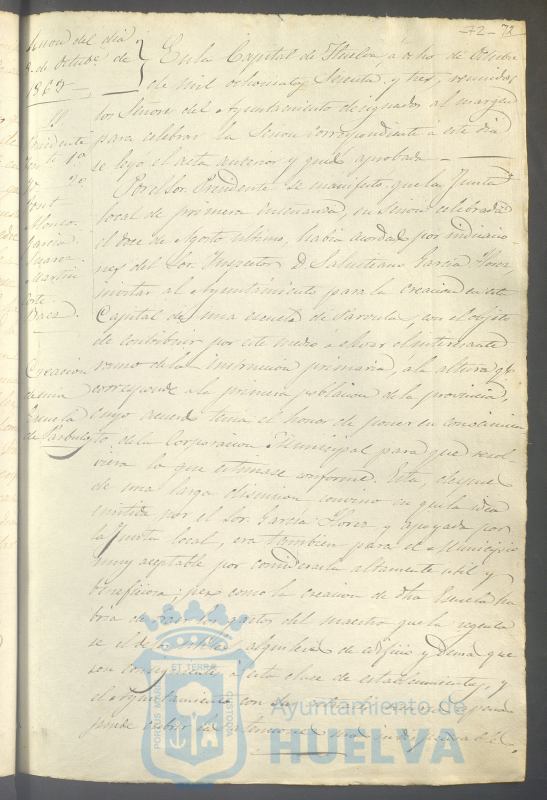 72 - 72
Sesion del dia
8. de Octubre de
1863.
Sres.
Presidente
Ten.te 1.º
Yd. 2.º
Mont
Alonso
Garcia
Suarez
Martin
Corte
Baez.
Creacion
de una
Escuela
de Parbulos
En la Capital de Huelva á ocho de Octubre
de mil ochocientos sesenta y tres, reunidos
los Señores del Ayuntamiento designados al margen
para celebrar la Sesion correspondiente á este dia
se leyó el acta anterior y qued aprobada.
Por el Sor. Presidente se manifestó que la Junta
local de primera enseñanza, en sesion celebrada
el doce de Agosto ultimo, habia acordado por indicacio-
nes del Sor. Inspector D. Salustiano Garcia Florez,
invitar al Ayuntamiento para la creacion en esta
Capital de una escuela de Parvulos, con el objeto
de contribuir por este medio a elevar el interesante
ramo de la instruccion primaria, á la altura q.e
corresponde a la primera poblacion de la provincia,
cuyo acuerdo tenia el honor de poner en conocimien
to de la Corporacion Municipal para que resol-
viera lo que estimase conforme. Esta, despues
de una larga discusion convino en que la idea
emitida por el Sor. Garcia Florez y apoyada por
la Junta local, era tambien para el Municipio
muy aceptable por considerarla altamente util y
beneficiosa; pero como la creacion de dha Escuela ha
bria de los gastos del maestro que la regenta
se el de los utiles alquileres de edificio y demas que
son consiguientes á esta clase de establecimientos, y
el Ayuntamiento con
ponde cubrir
PORTUS MARIS
ET TERRAE
CUSTODIA
Ayuntamiento de
HUELVA